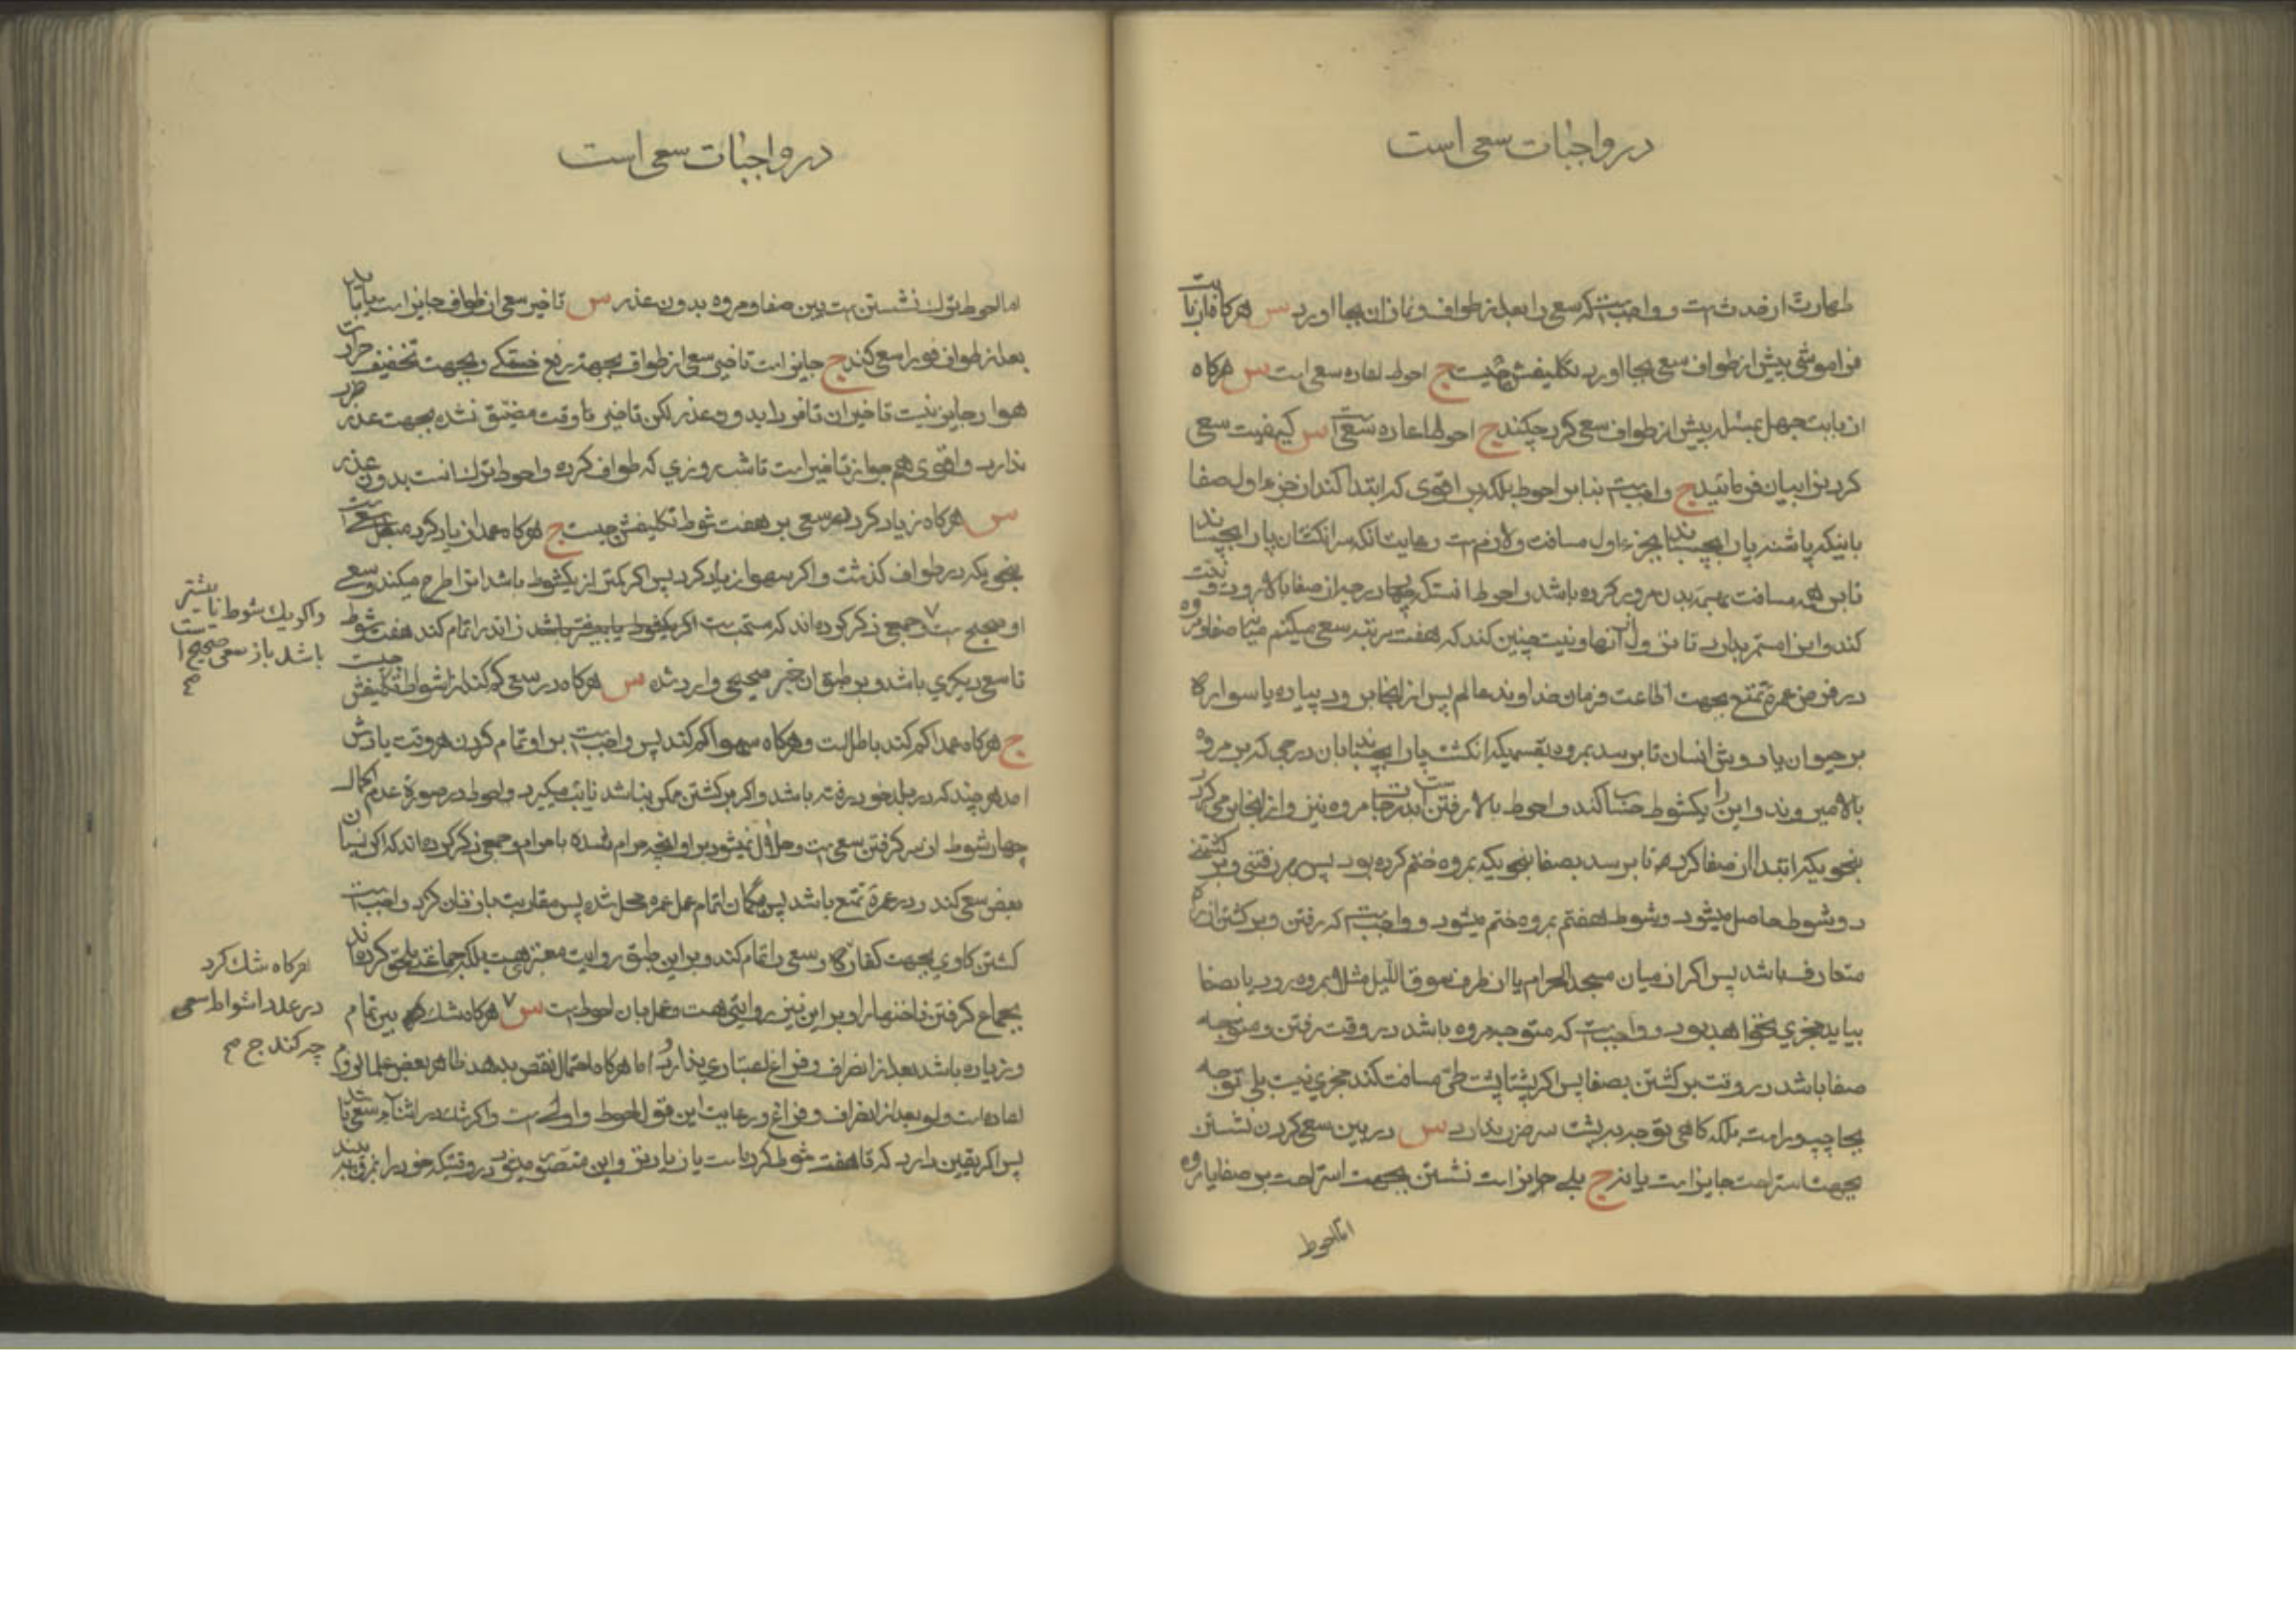 در واجبات سعی است
طهارت از حدث است و واجبست که سعی را بعد از طواف و نماز ان بجا اورد س هرکاه از بابت
فراموشی پیش از طواف سعی بجا اورد تکلیفش چیست ج احوط اعاده سعی است س هرکاه
از بابت جهل بمسئله پیش از طواف سعی کرد چکند ج احوط اعاده سعی است س کیفیت سعی
کردن را بیان فرمائید ج واجبست بنا بر احوط بلکه بر اقوی که ابتدا کند از جزء اول صفا
باینکه پاشنه پا را بچسباند بجزء اول مسافت و لازم است رعایت انکه سر انکشتان پا را بچسباند
تا بر همه مسافت ببدن مرور کرده باشد و احوط انست که بچهار درجه از صفا بالا رود و نیت
کند و این امر مستمر بدارد تا نزول از آنها و نیت چنین کند که هفت مرتبه سعی میکنم میان صفا و مروه
در فرض عمره تمتع بجهت اطاعت فرمان خداوند عالم پس از انجا برود پیاده یا سواره
بر حیوان یا دوش انسان تا برسد بمروه بقسمیکه انکشت پا را بچسباند بان درجی که بر مروه
بالا میروند و این را یکشوط حساب کند و احوط بالا رفتن است بدرجات مروه نیز و از انجا برمیکردد
بنحویکه ابتدا از صفا کرده تا برسد بصفا بنحویکه بمروه ختم کرده بود پس بهر رفتنی و بر کشتنی
دو شوط حاصل میشود و شوط هفتم بمروه ختم میشود و واجبست که رفتن و بر کشتن از راه
متعارف باشد پس اکر از میان مسجد الحرام یا از طرف سوق اللیل مثلا بمروه رود یا بصفا
بیاید مجزی نخواهد بود و واجبست که متوجه مروه باشد در وقت رفتن و متوجه
صفا باشد در وقت بر کشتن بصفا پس اکر پشتا پشت طی مسافت کند مجزی نیست بلی توجه
بجا چپ و راست بلکه کاهی توجه به پشت سر ضرر ندارد س در بین سعی کردن نشستن
بجهت استراحت جایز است یا نه ج بلی جایز است نشستن بجهت استراحت بر صفا یا مروه
اما احوط
در واجبات سعی است
اما احوط ترک نشستن است بین صفا و مروه بدون عذر س تاخیر سعی از طواف جایز است یا باید
بعد از طواف فورا سعی کند ج جایز است تاخیر سعی از طواف بجهة رفع خستکی و بجهت تخفیف حرارت
هوا و جایز نیست تاخیر ان تا فردا بدون عذر لکن تاخیر تا وقت مضیق نشده بجهت عذر ضرر
ندارد و اقوی هم جواز تاخیر است تا شب روزی که طواف کرده و احوط ترک انست بدون عذر
س هرکاه زیاد کرد در سعی بر هفت شوط تکلیفش چیست ج هرکاه عمدا زیاد کرد سعی مبطل است
بنحویکه در طواف کذشت و اکر سهوا زیاد کرد پس اکر کمتر از یکشوط باشد انرا طرح میکند و سعی
او صحیح است ۷ و جمعی ذکر کرده اند که مستحب است اکر یکشوط یا بیشتر باشد زائد را تمام کند هفت شوط
تا سعی دیکری باشد و بر طبق ان خبر صحیحی وارد شده س هرکاه در سعی کم کند از اشواط تکلیفش چیست
ج هرکاه عمدا کم کند باطل است و هرکاه سهوا کم کند پس واجبست بر او تمام کردن هر وقت یادش
امد هر چند که در بلد خود رفته باشد و اکر بر کشتن ممکن نباشد نایب میکیرد و احوط در صورة عدم اکمال
چهار شوط از سر کرفتن سعی است و حلال نمیشود بر او انچه حرام شده باحرام و جمعی ذکر کرده اند که اکر نسیان
بعض سعی کند و در عمره تمتع باشد پس بکمان اتمام عمل عمره محل شده پس مقاربت با زنان کرد واجبست
کشتن کاوی بجهت کفاره و سعی را تمام کند و بر این طبق روایت معتبر هست بلکه جماعتی ملحق کرده اند
بجماع کرفتن ناخنها را و بر این نیز روایتی هست و عمل بان احوط است س ۷ هرکاه شک بین تمام
و زیاده باشد بعد از انصراف و فراغ اعتباری ندارد و اما هرکاه احتمال نقص بدهد ظاهر بعض علما لزوم
اعاده است ولو بعد از انصراف و فراغ و رعایت این قول احوط و اولی است و اکر شک در اثناء سعی باشد
پس اکر یقین دارد که تا هفت شوط کرده است یا زیادتر و این متصور میشود در وقتیکه خود را بمروه بیند
و اکر یک شوط تا بیشتر
باشد باز سعی صحیح است
صح
هرکاه شک کرد
در عدد اشواط سعی
چه کند ج صح